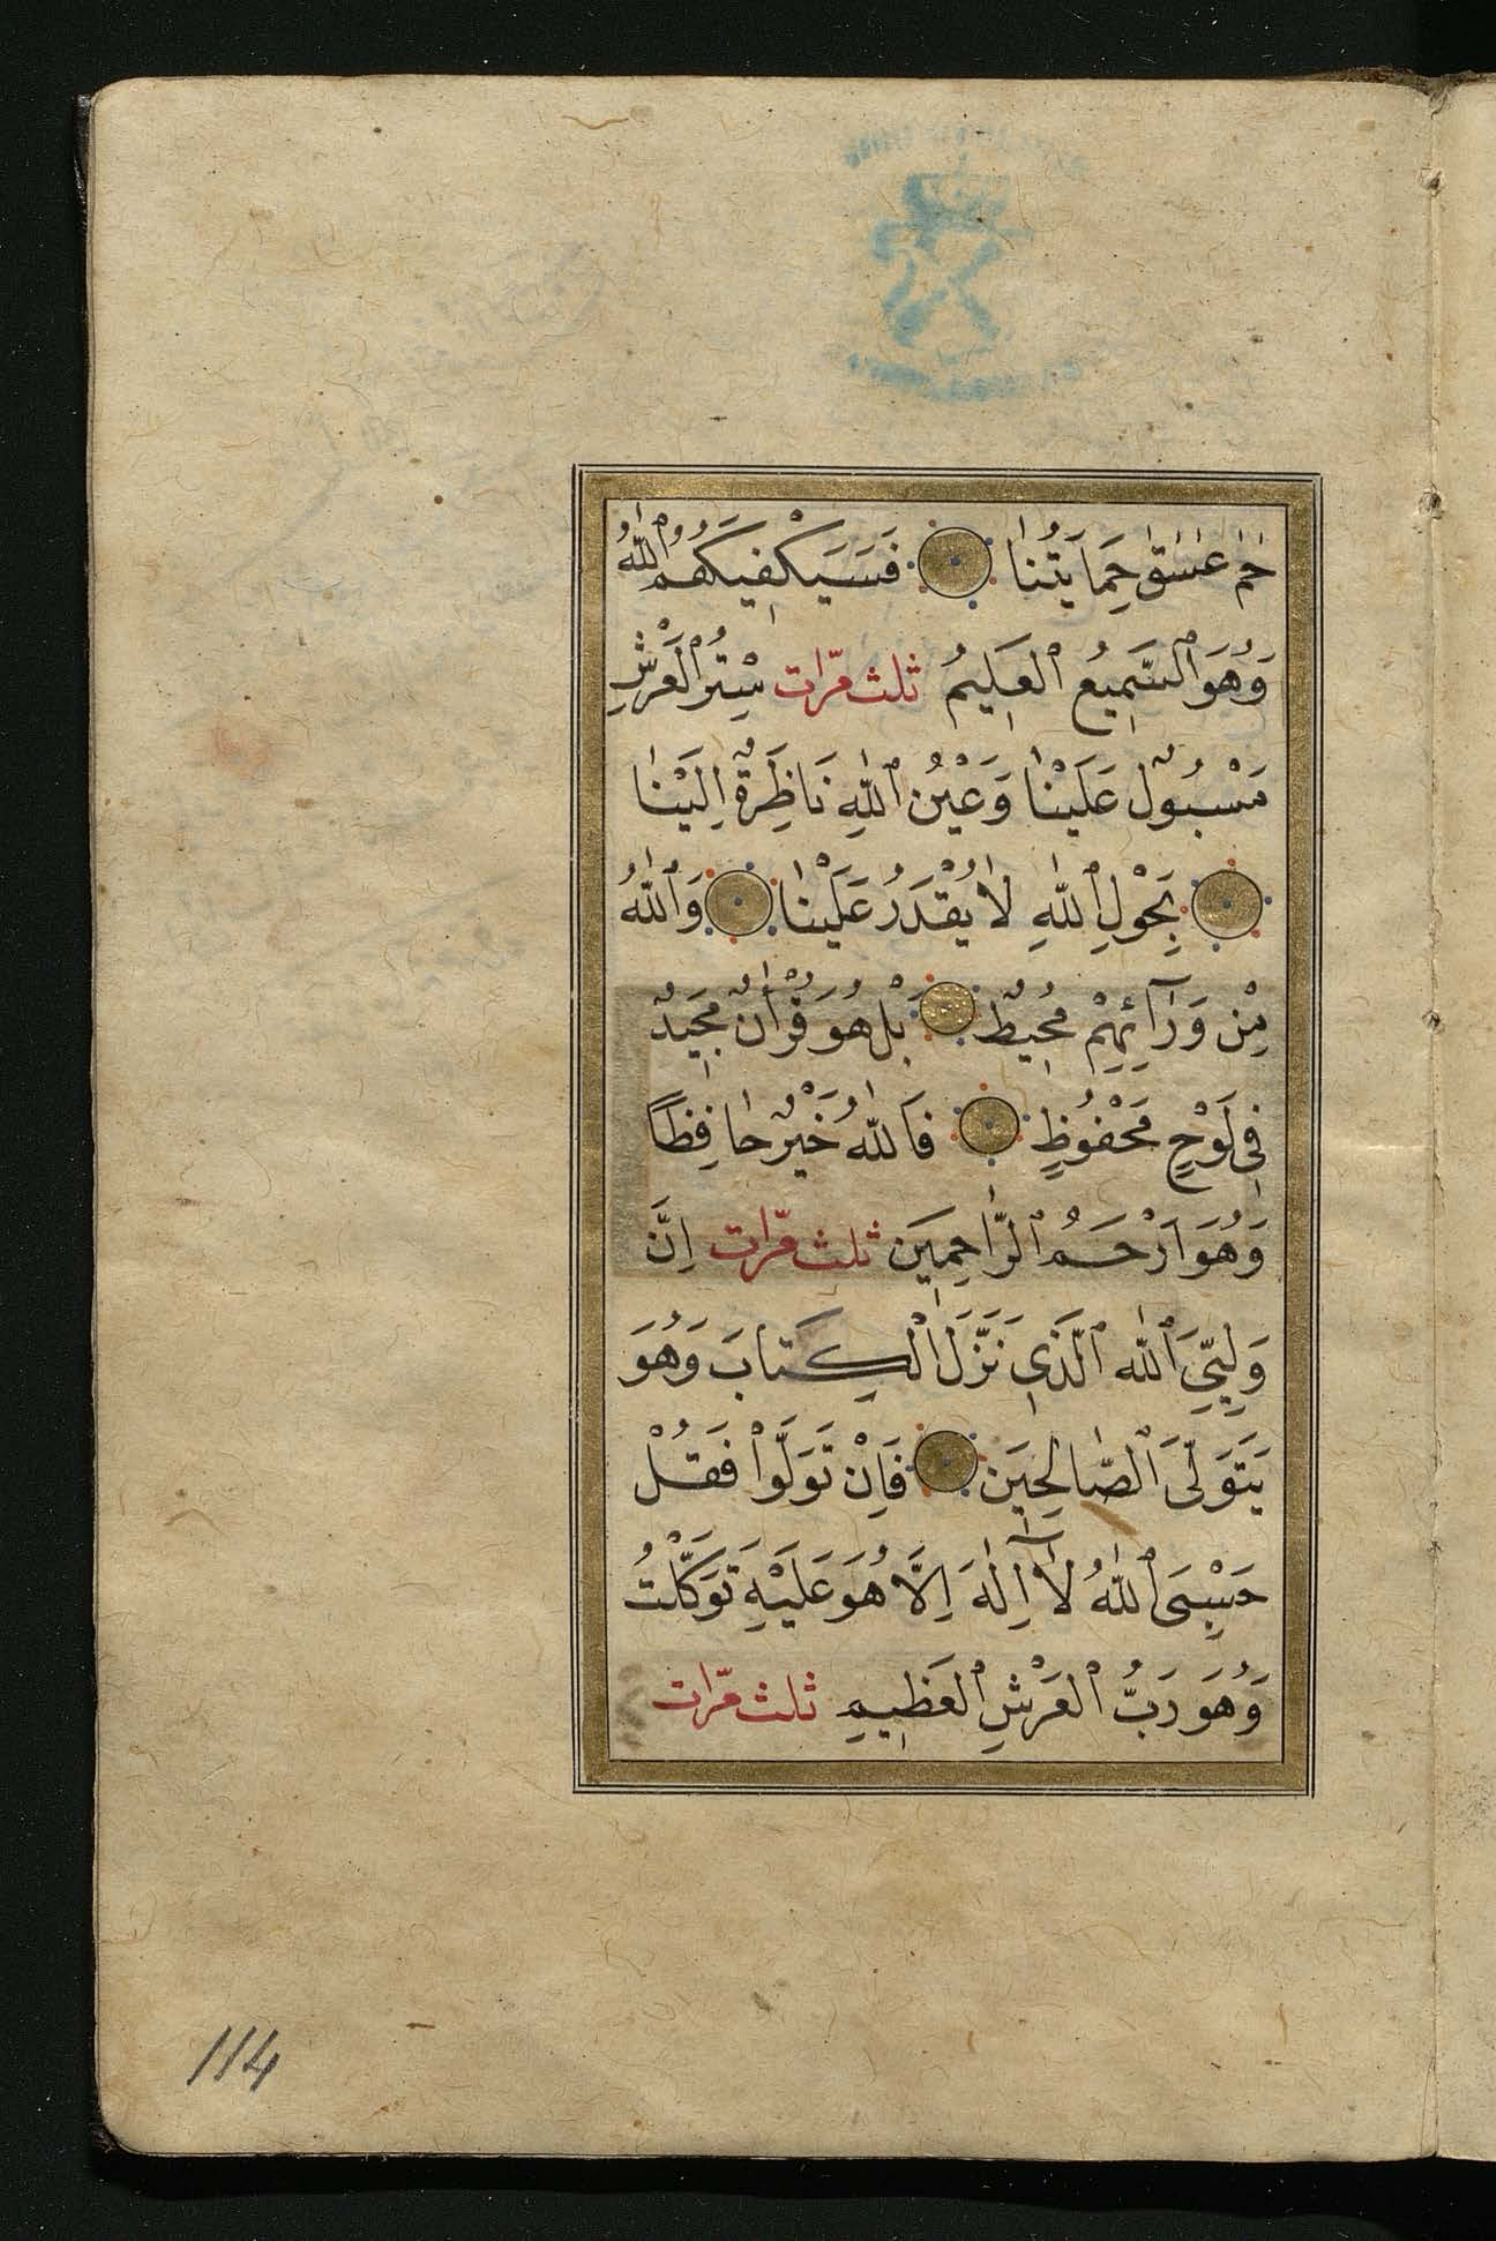 حٰمٰ عٰسٰقٰ حِمَايَتُنَا فَسَيَكْفِيكَهُمُ ٱللّٰهُ
وَهُوَ ٱلسَّمِيعُ ٱلْعَلِيمُ ثلث مرّات سِتْرُ ٱلْعَرْشِ
مَسْبُولٌ عَلَيْنَا وَعَيْنُ ٱللّٰهِ نَاظِرَةٌ اِلَيْنَا
بِحَوْلِ ٱللّٰهِ لَا يُقْدَرُ عَلَيْنَا وَٱللّٰهُ
مِنْ وَرَآئِهِمْ مُحِيطٌ بَلْ هُوَ قُرْاٰنٌ مَجِيدٌ
فِى لَوْحٍ مَحْفُوظٍ فَاللّٰهُ خَيْرٌ حَافِظًا
وَهُوَ اَرْحَمُ ٱلرَّاحِمِينَ ثلث مرّات اِنَّ
وَلِيِّيَ ٱللّٰه ٱلَّذِى نَزَّلَ ٱلْكِتَابَ وَهُوَ
يَتَوَلَّى ٱلصَّالِحِينَ فَاِنْ تَوَلَّوْا فَقُلْ
حَسْبِىَ ٱللّٰهُ لَآ اِلٰهَ اِلَّا هُوَ عَلَيْهِ تَوَكَّلْتُ
وَهُوَ رَبُّ ٱلْعَرْشِ ٱلْعَظِيمِ ثلث مرّات
114